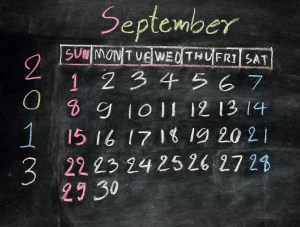 September
SUN MON TUE WED THU FRI SAT
1 2 3 4 5 6 7
8 9 10 11 12 13 14
15 16 17 18 19 20 21
22 23 24 25 26 27 28
29 30
2
0
1
3